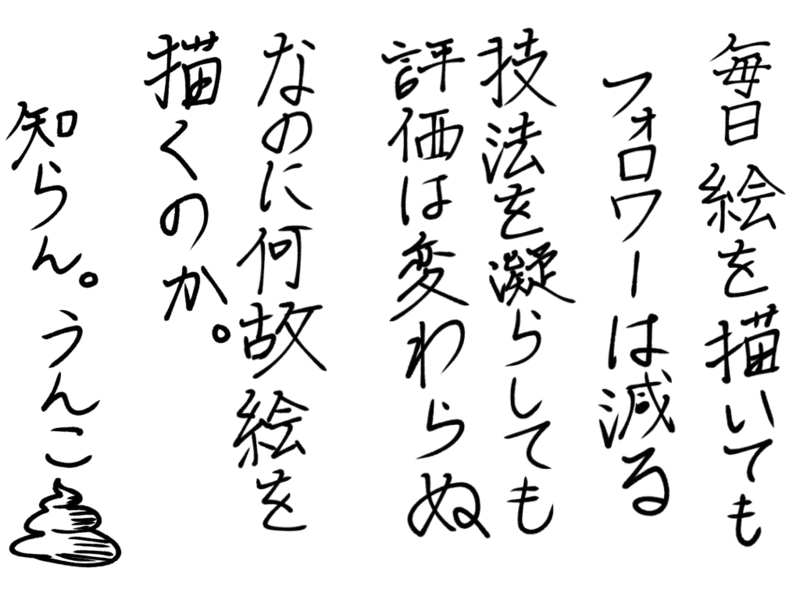 毎日絵を描いても
フォロワーは減る
技法を凝らしても
評価は変わらぬ
なのに何故絵を
描くのか。
知らん。うんこ